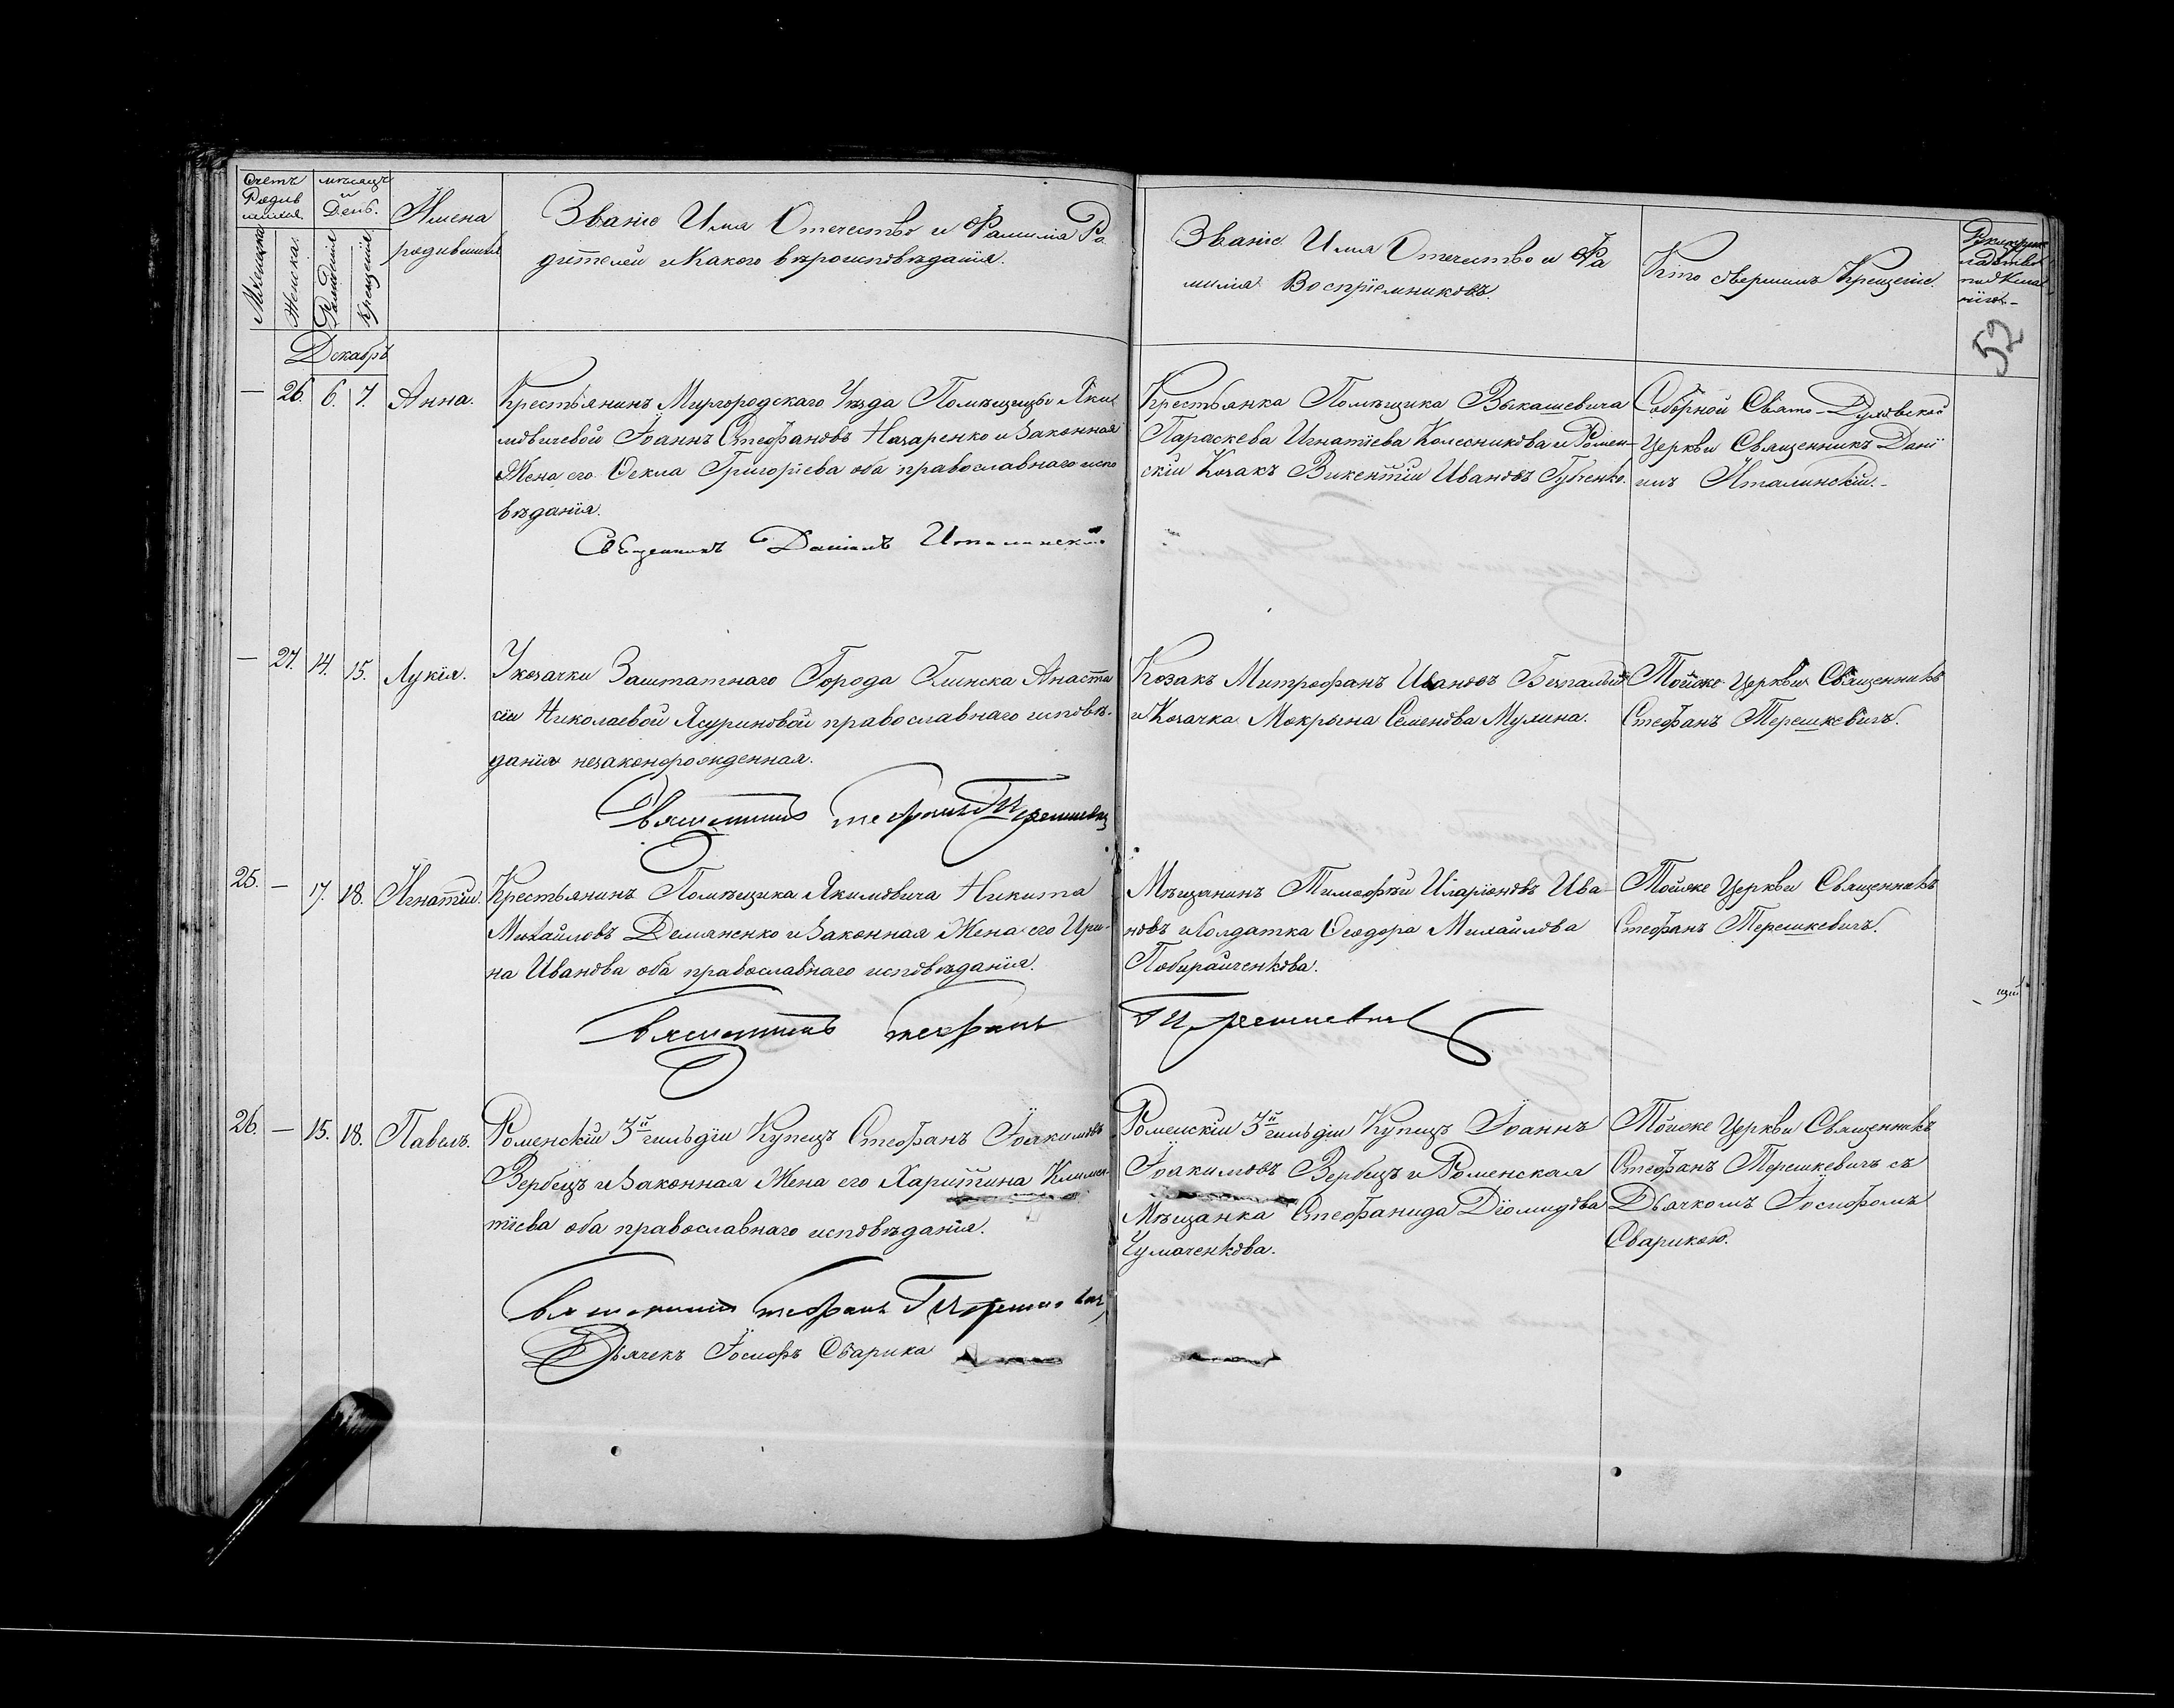 Счетъ
Родив
шихся.
Мѣсяцъ
и
День.
Мужеска.
Женска.
Рожденія
Крещенія.
Имена
родившихся
Званіе Имя Отечество и Фамилія Ро
дителей и Какого вѣроисповѣданія.
Званіе Имя Отечество и Фа
милія Воспріемниковъ.
Кто совершилъ Крещеніе.
52
Декабрь
— 26. 6. 7. Анна.
Крестьянинъ Миргородскаго Уѣзда Помѣщицы Яки
мовичевой Іоаннъ Стефановъ Назаренко и Законная
Жена его Ѳекла Григоріева оба православнаго испо
вѣданія.
Священникъ Даніилъ Италинскій
Крестьянка Помѣщика Выкашевича
Параскева Игнатіева Колесникова и Ромен-
скій Козакъ Викентій Ивановъ Губенко.
Соборной Свято-Духовской
Церкви Священникъ Дані
илъ Италинскій.-
— 27. 14. 15. Лукія.
У козачки Заштатнаго Города Глинска Анаста
сіи Николаевой Ясуриновой православнаго исповѣ-
данія незаконорожденная.
Священникъ Стефанъ Терешкевичъ
Козакъ Митрофанъ Ивановъ
и Козачка Мокрына Семенова Мулина.
Тойже Церкви Священникъ
Стефанъ Терешкевичъ.
25. — 17. 18. Игнатій.
Крестьянинъ Помѣщика Якимовича Никита
Михайловъ Демяненко и Законная Жена его Ири-
на Иванова оба православнаго исповѣданія.
Священникъ Стефанъ Терешкевичъ
Мѣщанинъ Тимофѣй Иларіоновъ Ива
новъ и Солдатка Ѳеодора Михайлова
Побирайченкова.
Тойже Церкви Священникъ
Стефанъ Терешкевичъ.
26. — 15. 18. Павелъ.
Роменскій 3й гильдіи Купецъ Стефанъ Іоакимовъ
Вербецъ и Законная Жена его Харитина Климен
тіева оба православнаго исповѣданія.
Священникъ Стефанъ Терешкевичъ
Дьячекъ Іосифъ Сварика
Роменскій 3й гильдіи Купецъ Іоаннъ
Іоакимовъ Вербецъ и Роменская
Мѣщанка Стефанида Діомидова
Чумаченкова.
Тойже Церкви Священникъ
Стефанъ Терешкевичъ съ
Дьячкомъ Іосифомъ
Сварикою.